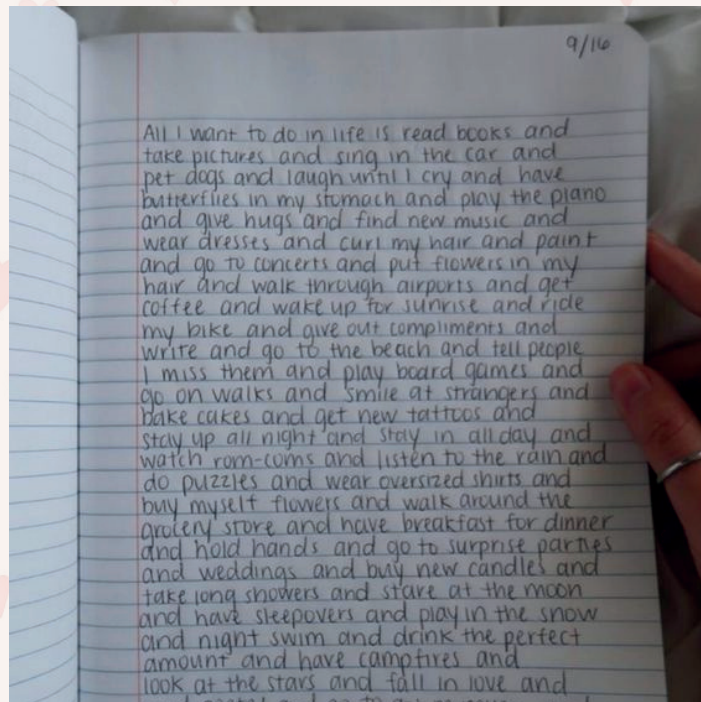 9/16
All I want to do in life is read books and
take pictures and sing in the car and
pet dogs and laugh until I cry and have
butterflies in my stomach and play the piano
and give hugs and find new music and
wear dresses and curl my hair and paint
and go to concerts and put flowers in my
hair and walk through airports and get
coffee and wake up for sunrise and ride
my bike and give out compliments and
write and go to the beach and tell people
I miss them and play board games and
go on walks and smile at strangers and
bake cakes and get new tattoos and
stay up all night and stay in all day and
watch rom-coms and listen to the rain and
do puzzles and wear oversized shirts and
buy myself flowers and walk around the
grocery store and have breakfast for dinner
and hold hands and go to surprise parties
and weddings and buy new candles and
take long showers and stare at the moon
and have sleepovers and play in the snow
and night swim and drink the perfect
amount and have campfires and
look at the stars and fall in love and